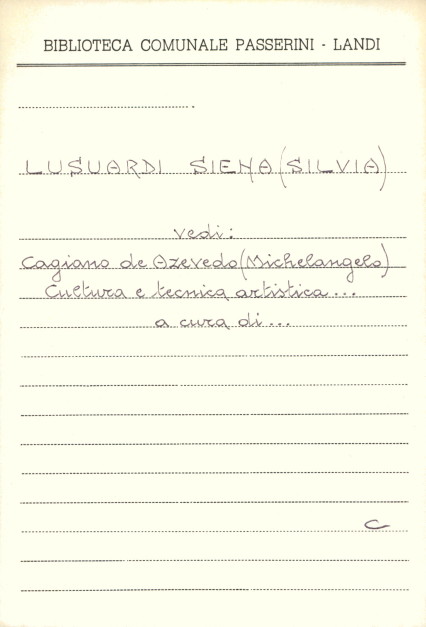 BIBLIOTECA COMUNALE PASSERINI - LANDI
LUSUARDI SIENA (SILVIA)
vedi:
Cagiano de Azevedo (Michelangelo)
Cultura e tecnica artistica...
a cura di...
C